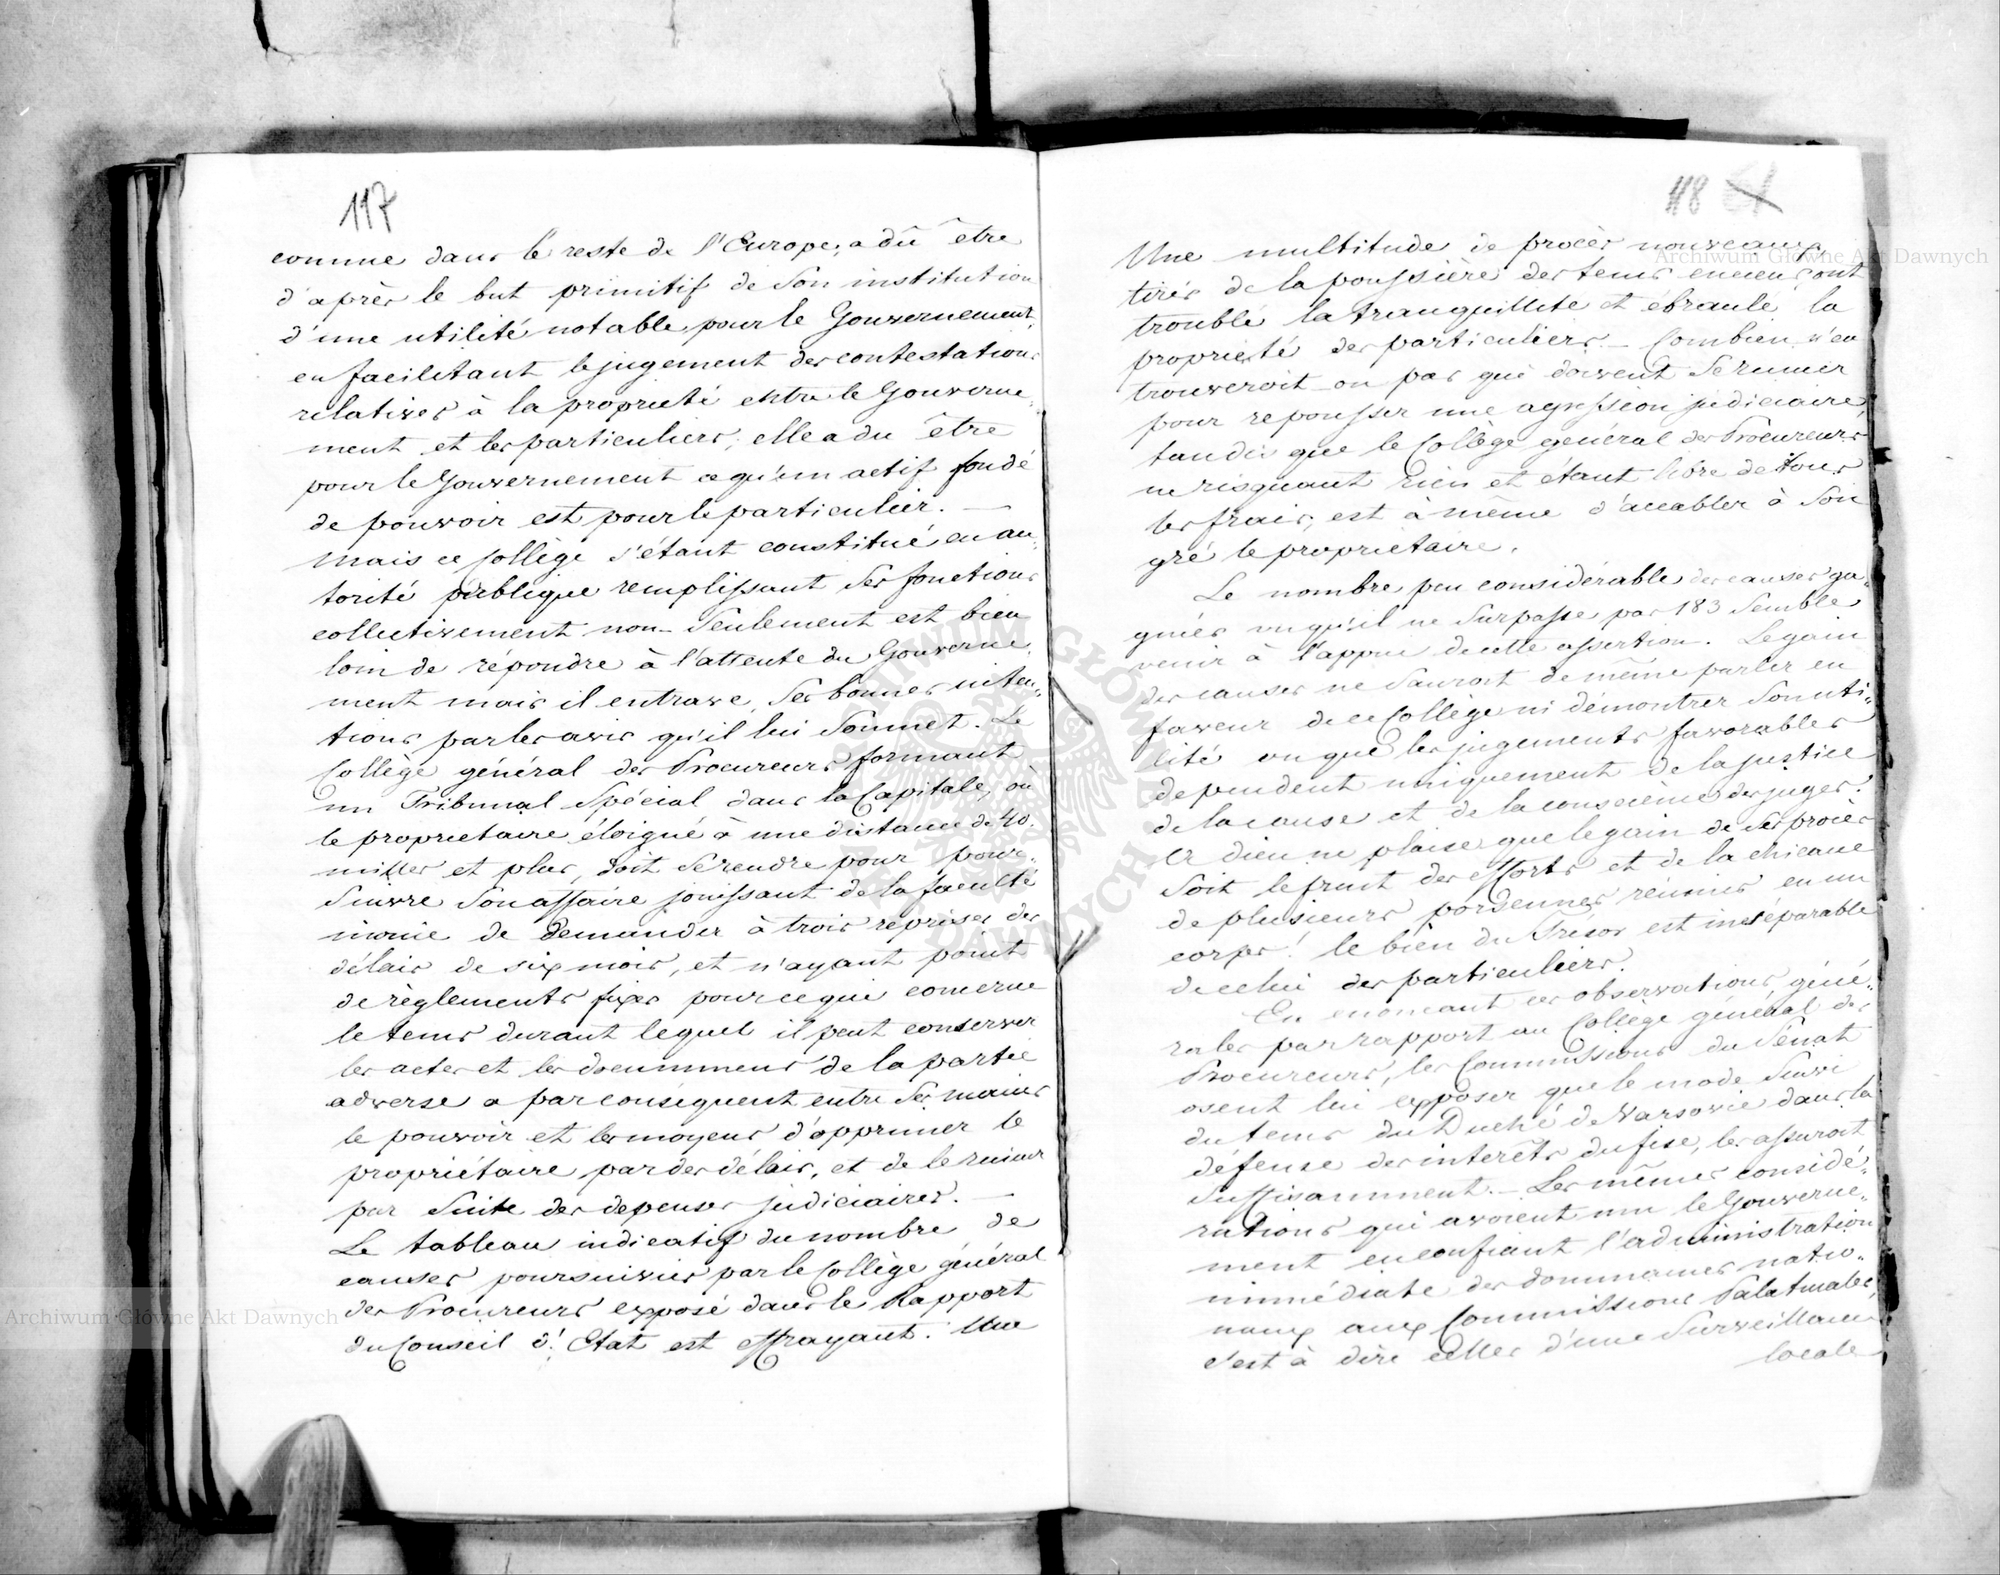 117
comme dans le reste de l'Europe, a dû être
d'après le but primitif de son institution
d'une utilité notable pour le Gouvernement,
en facilitant le jugement des contestations
relatives à la proprieté entre le Gouverne-
ment et les particuliers; elle a du être
pour le Gouvernement ce qu'un actif fondé
de pouvoir est pour le particulier. —
Mais ce Collège s'étant constitué en au-
torité publique remplissant ses fonctions
collectivement non-seulement est bien
loin de répondre à l'attente du Gouverne-
ment mais il entrave, ses bonnes inten-
tions par les avis qu'il lui soumet. Le
Collège général des Procureurs formant
un Tribunal Spécial dans la Capitale, où
le proprietaire éloigné à une distance de 40.
milles et plus, doit se rendre pour pour-
suivre son affaire jouissant de la faculté
inouie de demander à trois reprises des
délais de six mois, et n'ayant point
de règlements fixes pour ce qui concerne
le tems durant lequel il peut conserver
les actes et les documens de la partie
adverse a par conséquent entre ses mains
le pouvoir et les moyens d'opprimer le
propriétaire par des délais, et de le ruiner
par suite des depenses judiciaires. —
Le tableau indicatif du nombre de
causes poursuivies par le Collège général
des Procureurs exposé dans le Rapport
du Conseil d'Etat est effrayant. Une
118
Une multitude de procès nouveaux
tirés de la poussière des tems anciens ont
troublé la tranquillité et ébranlé la
proprieté des particuliers — Combien n'en
trouveroit-on pas qui doivent se ruiner
pour repousser une agression judiciaire,
tandis que le Collège général des Procureurs
ne risquant rien et étant libre de tous
les frais, est à même d'accabler à son
gré le proprietaire.
Le nombre peu considérable des causes ga-
gnées vu qu'il ne surpasse pas 183 semble
venir à l'appui de cette assertion. Le gain
des causes ne sauroit de même parler en
faveur de ce Collège ni démontrer son uti-
lité vu que les jugements favorables
dependent uniquement de la justice
de la cause et de la conscience des juges.
A dieu ne plaise que le gain de ses procès
soit le fruit des efforts et de la chicane
de plusieurs personnes réunies en un
corps! le bien du Trésor est inséparable
de celui des particuliers.
En enoncant ces observations géné-
rales par rapport au Collège général des
Procureurs, les Commissions du Sénat
osent lui exposer que le mode suivi
du tems du Duché de Varsovie dans la
défense des interêts du fisc, les assuroit
suffisamment. — Les mêmes considé-
rations qui avoient mu le Gouverne-
ment en confiant l'administration
immédiate des dommaines natio-
naux aux Commissions Palatinales,
c'est à dire celles d'une surveillance
locale